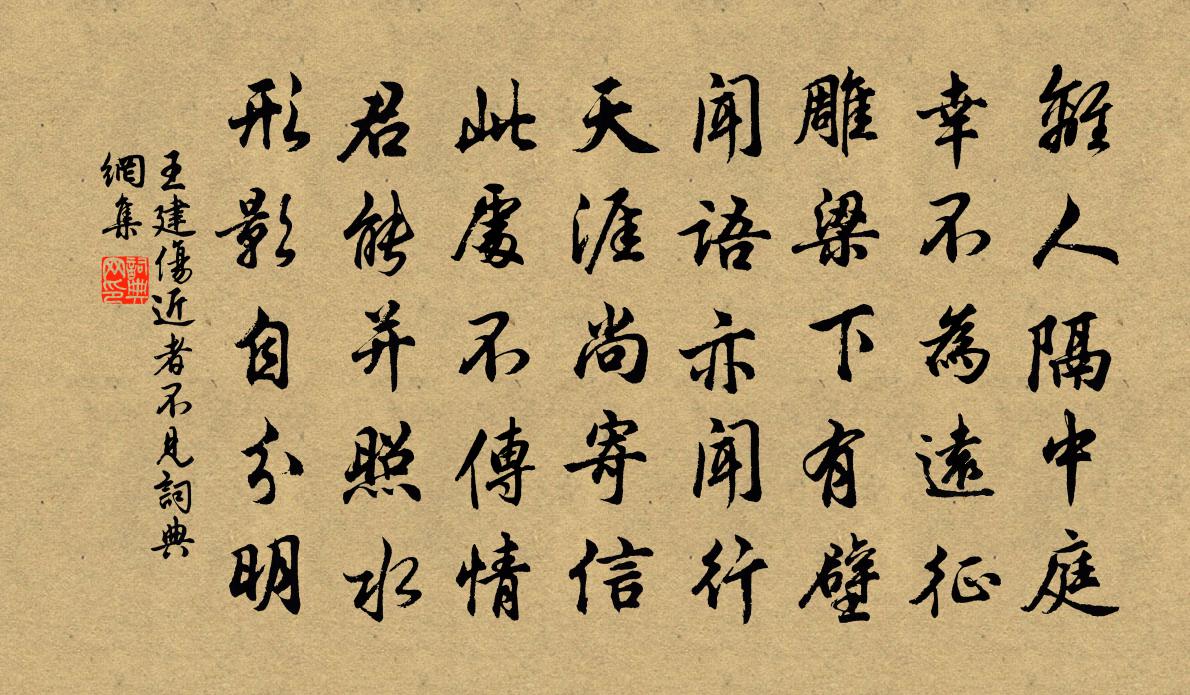 離人隔中庭
幸不為遠征
雕梁下有壁
聞語亦聞行
天涯尚寄信
此處不傳情
君能并照水
形影自分明
王建傷近者不見詞典
網集
詞典
网印